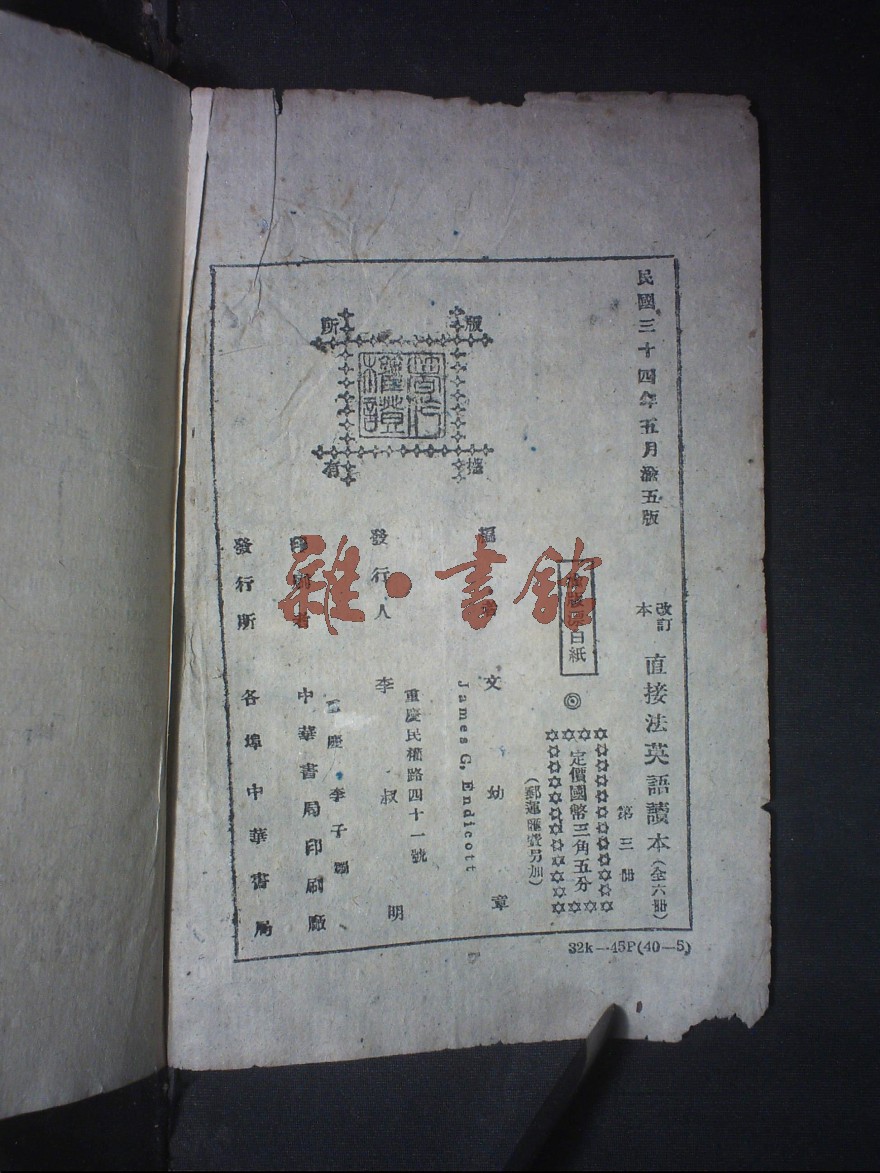 民國三十四年五月渝五版
改訂本 直接法英語讀本(全六冊)
第三冊
定價國幣三角五分
(郵運匯費另加)
白紙
文幼章
James G. Endicott
發行人 李叔明
重慶民權路四十一號
中華書局印刷廠
重慶·李子壩
發行所 各埠中華書局
版權所有
32k—45P(40—5)
雜·書館